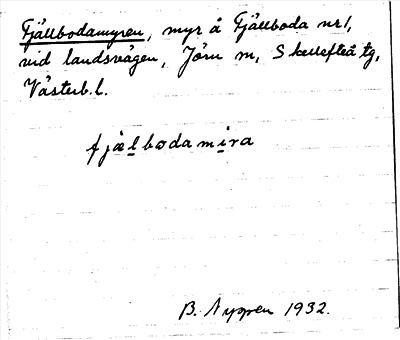 Fjällbodamyren, myr å Fjällboda nr 1,
vid landsvägen, Jörn m, Skellefteå tg,
Västerb. l.
fjælbodamira
B. Nygren 1932.